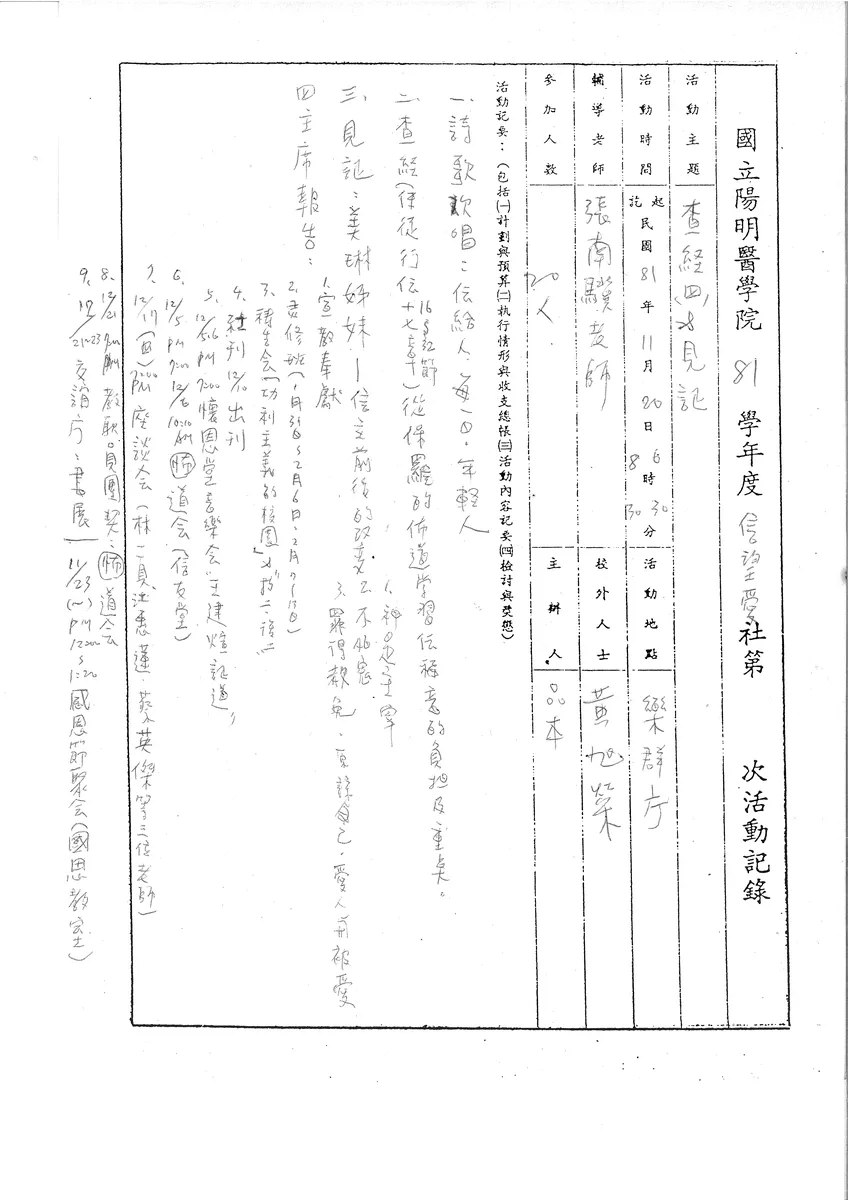 國立陽明醫學院 81 學年度 信望愛社第 次活動記錄
活動主題 查経(四), 見証
活動時間 起訖 民國 81 年 11 月 20 日 6 時 30 分 8 30 活動地點 樂群厅
輔導老師 張南驥老師 校外人士 黃旭榮
參加人數 20人 主辦人 品本
活動記要：（包括㈠計劃與預算㈡執行情形與收支總帳㈢活動內容記要㈣檢討與獎懲）
一、詩歌欢唱：伝給人、每一日、年軽人
二、查経(使徒行伝十七章16~32節)從保羅的佈道学習伝福音的負担及重点。
三、見証：美琳姊妹－信主前後的改变 1.神是主宰
2.不抱怨
3.罪得赦免
愛人并被愛
四 主席報告：
1.宣教奉獻
2.灵修班(1月31日~2月6日、2月7~13日)
3.積生会(功利主義的校園)
4.社刊12/10出刊
5. 12/5.6 PM 7:00懷恩堂音樂会
6. 12/5 PM 7:00 12/6 10:10 AM 佈道会(信友堂)
7. 12/17 (四) PM 座談会(林一真 蔡英傑等三位老師)
8. 12/21 教職員團契：佈道会
9. 12/21~23 交誼厅：書展
11/23 (一) PM 12:00~1:20感恩節聚会(國思教室)